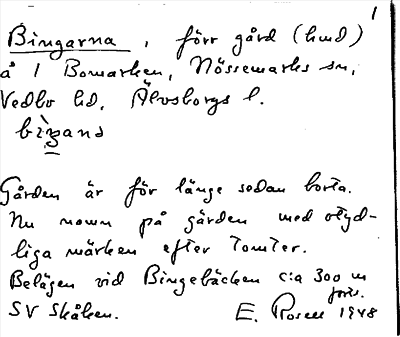 1
Bingarna, förr gård (hmd)
å 1 Bomarken, Nössemarks sn,
Vedbo hd, Älvsborgs l.
Gården är för länge sedan borta.
Nu namn på gärden med otyd-
liga märken efter tomter.
Belägen vid Bingebäcken c:a 300 m
SV Skåken. E. Rosell 1948